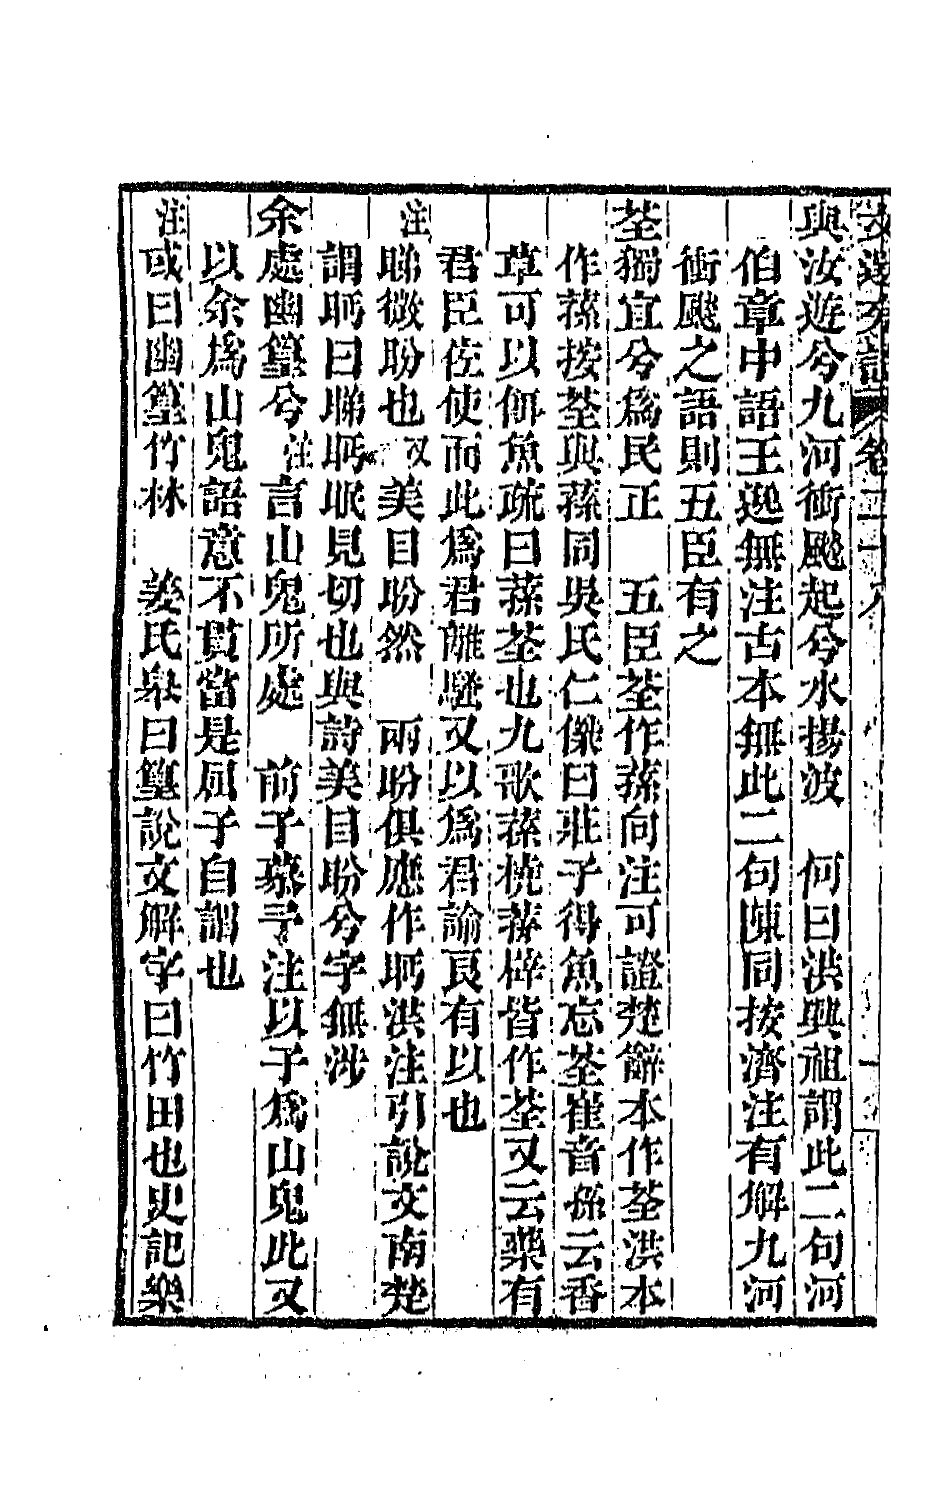 與汝遊兮九河衝飈起兮水揚波　何曰洪興祖謂此二句河
伯章中語王逸無注古本無此二句陳同按濟注有解九河
衝飈之語則五臣有之
荃獨宜兮爲民正　五臣荃作蓀向注可證楚辭本作荃洪本
作蓀按荃與蓀同吳氏仁傑曰莊子得魚忘荃崔音孫云香
草可以餌魚疏曰蓀荃也九歌蓀橈蓀壁皆作荃又云藥有
君臣佐使而此爲君離騷又以爲君諭良有以也
注睇微盼也　又美目盼然　兩盼俱應作眄洪注引說文南楚
謂眄曰睇眄眠見切也與詩美目盼兮字無涉
余處幽篁兮注言山鬼所處　前子慕予注以子爲山鬼此又
以余爲山鬼語意不貫當是屈子自謂也
注或曰幽篁竹林　姜氏皋曰篁說文解字曰竹田也史記樂